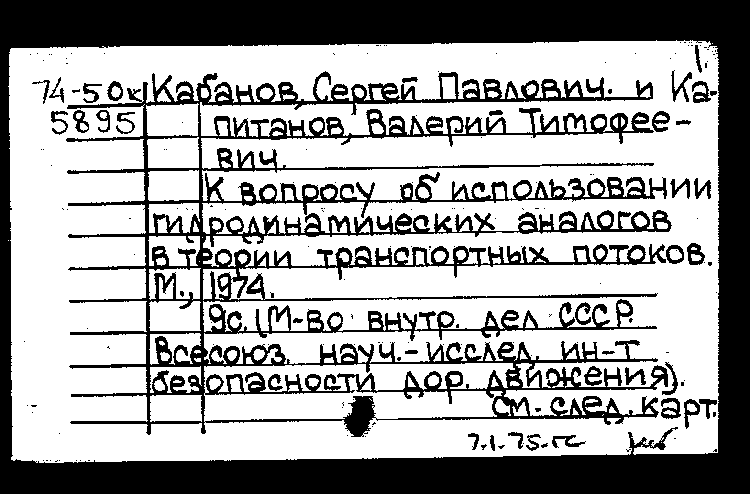 1.
74-50к Кабанов, Сергей Павлович. и Ка-
5895 питанов, Валерий Тимофее-
вич.
К вопросу об использовании
гидродинамических аналогов
в теории транспортных потоков.
М., 1974.
9с. (М-во внутр. дел СССР.
Всесоюз. науч.-исслед. ин-т
безопасности дор. движения).
См. след. карт.
7.1.75.гс